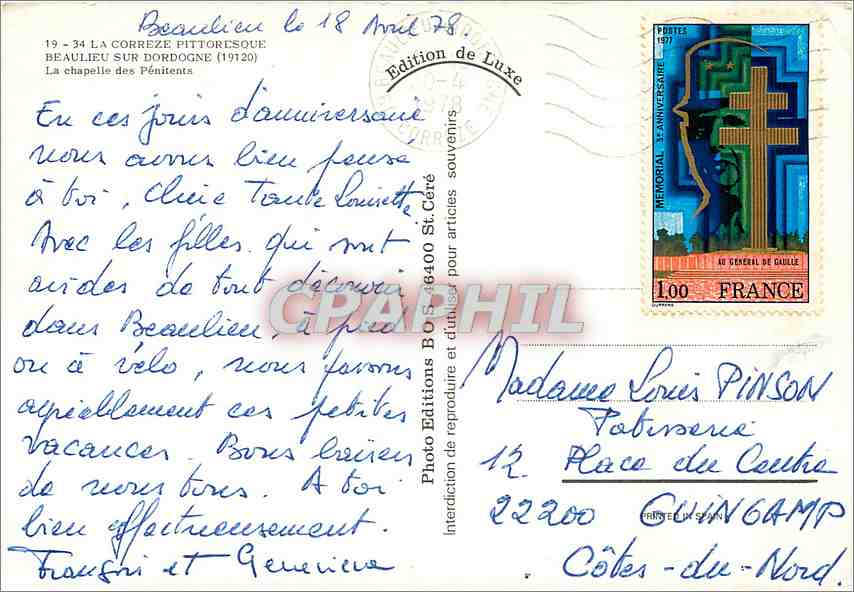 Beaulieu le 18 Avril 78.
19 - 34 LA CORREZE PITTORESQUE
BEAULIEU SUR DORDOGNE (19120)
La chapelle des Pénitents
En ces jours d'anniversaire,
nous avons bien pensé
à toi, Chère Tante Louisette.
Avec les filles qui sont
avides de tout découvrir
dans Beaulieu, à pied
ou à vélo, nous passons
agréablement ces petites
vacances. Bons baisers
de nous tous. A toi
bien affectueusement.
François et Geneviève
Edition de Luxe
Photo Editions BOS 46400 St. Céré
Interdiction de reproduire et d'utiliser pour articles souvenirs
1978
CORREZE
POSTES 1977
MEMORIAL 5e ANNIVERSAIRE
AU GENERAL DE GAULLE
1.00 FRANCE
Madame Louis PINSON
Patisserie
12 Place du Centre
22200 GUINGAMP
Côtes-du-Nord.
PRINTED IN SPAIN
CPAPHIL